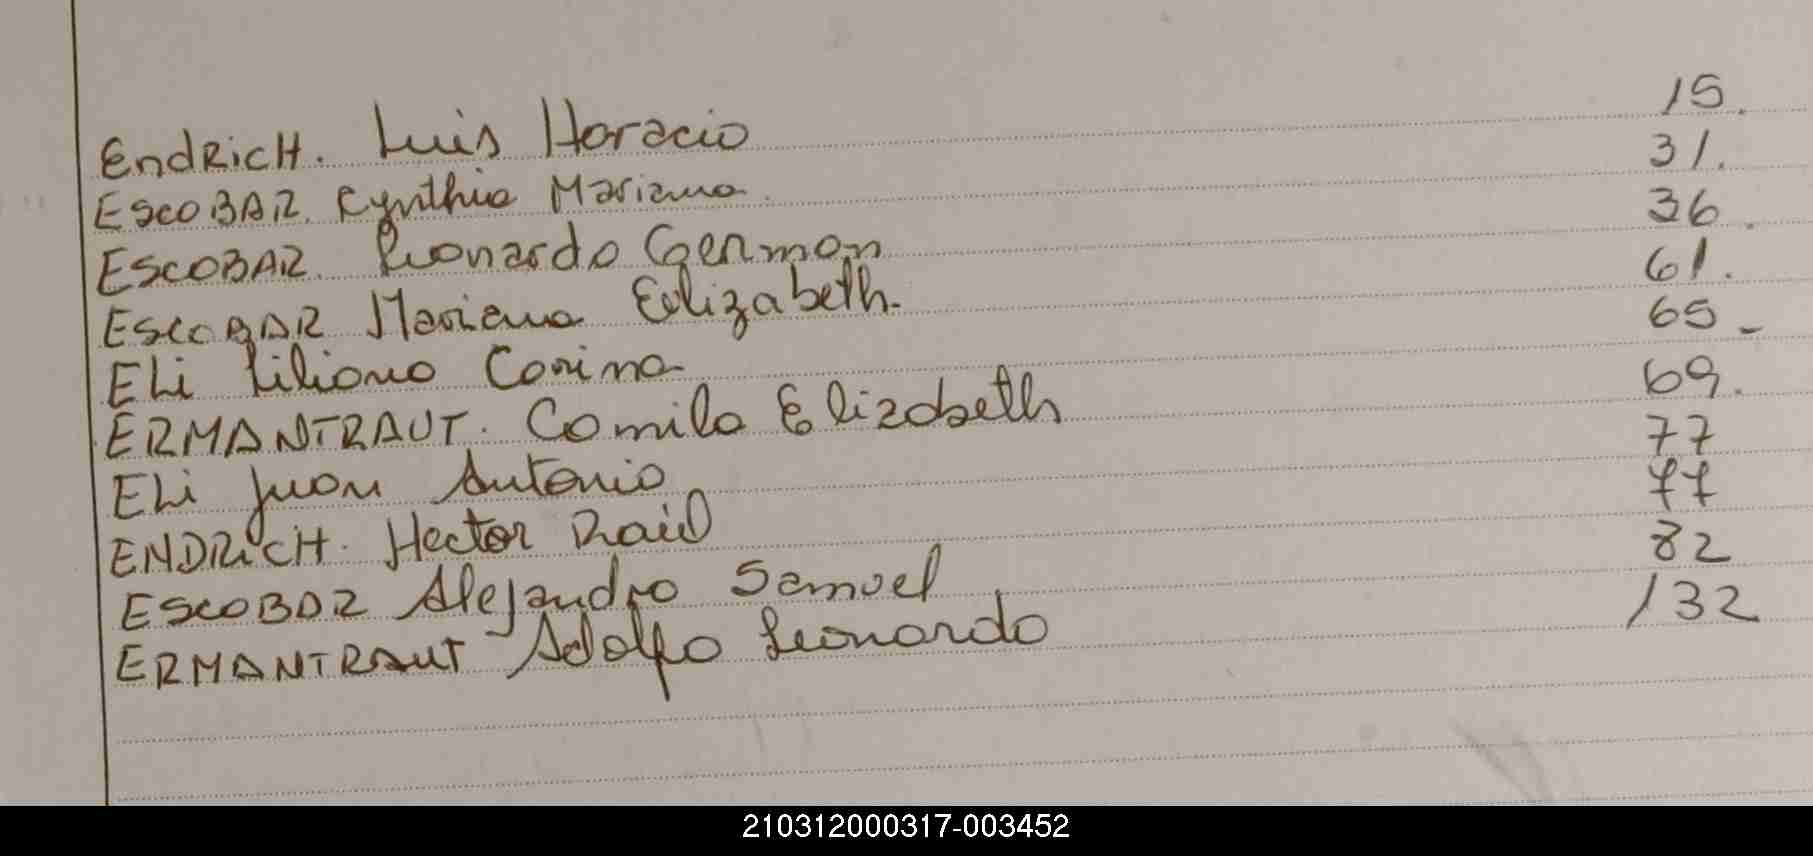 EndRicH. Luis Horacio 15.
ESCOBAR. Cynthia Mariana. 31.
ESCOBAR. Leonardo German 36.
ESCOBAR Mariana Elizabeth. 61.
ELi Liliana Corina 65-
ERMANTRAUT. Camila Elizabeth 69.
ELi Juan Antonio 77
ENDRicH. Hector Raúl 77
ESCOBAR Alejandro Samuel 82
ERMANTRAUT Adolfo Leonardo 132
210312000317-003452